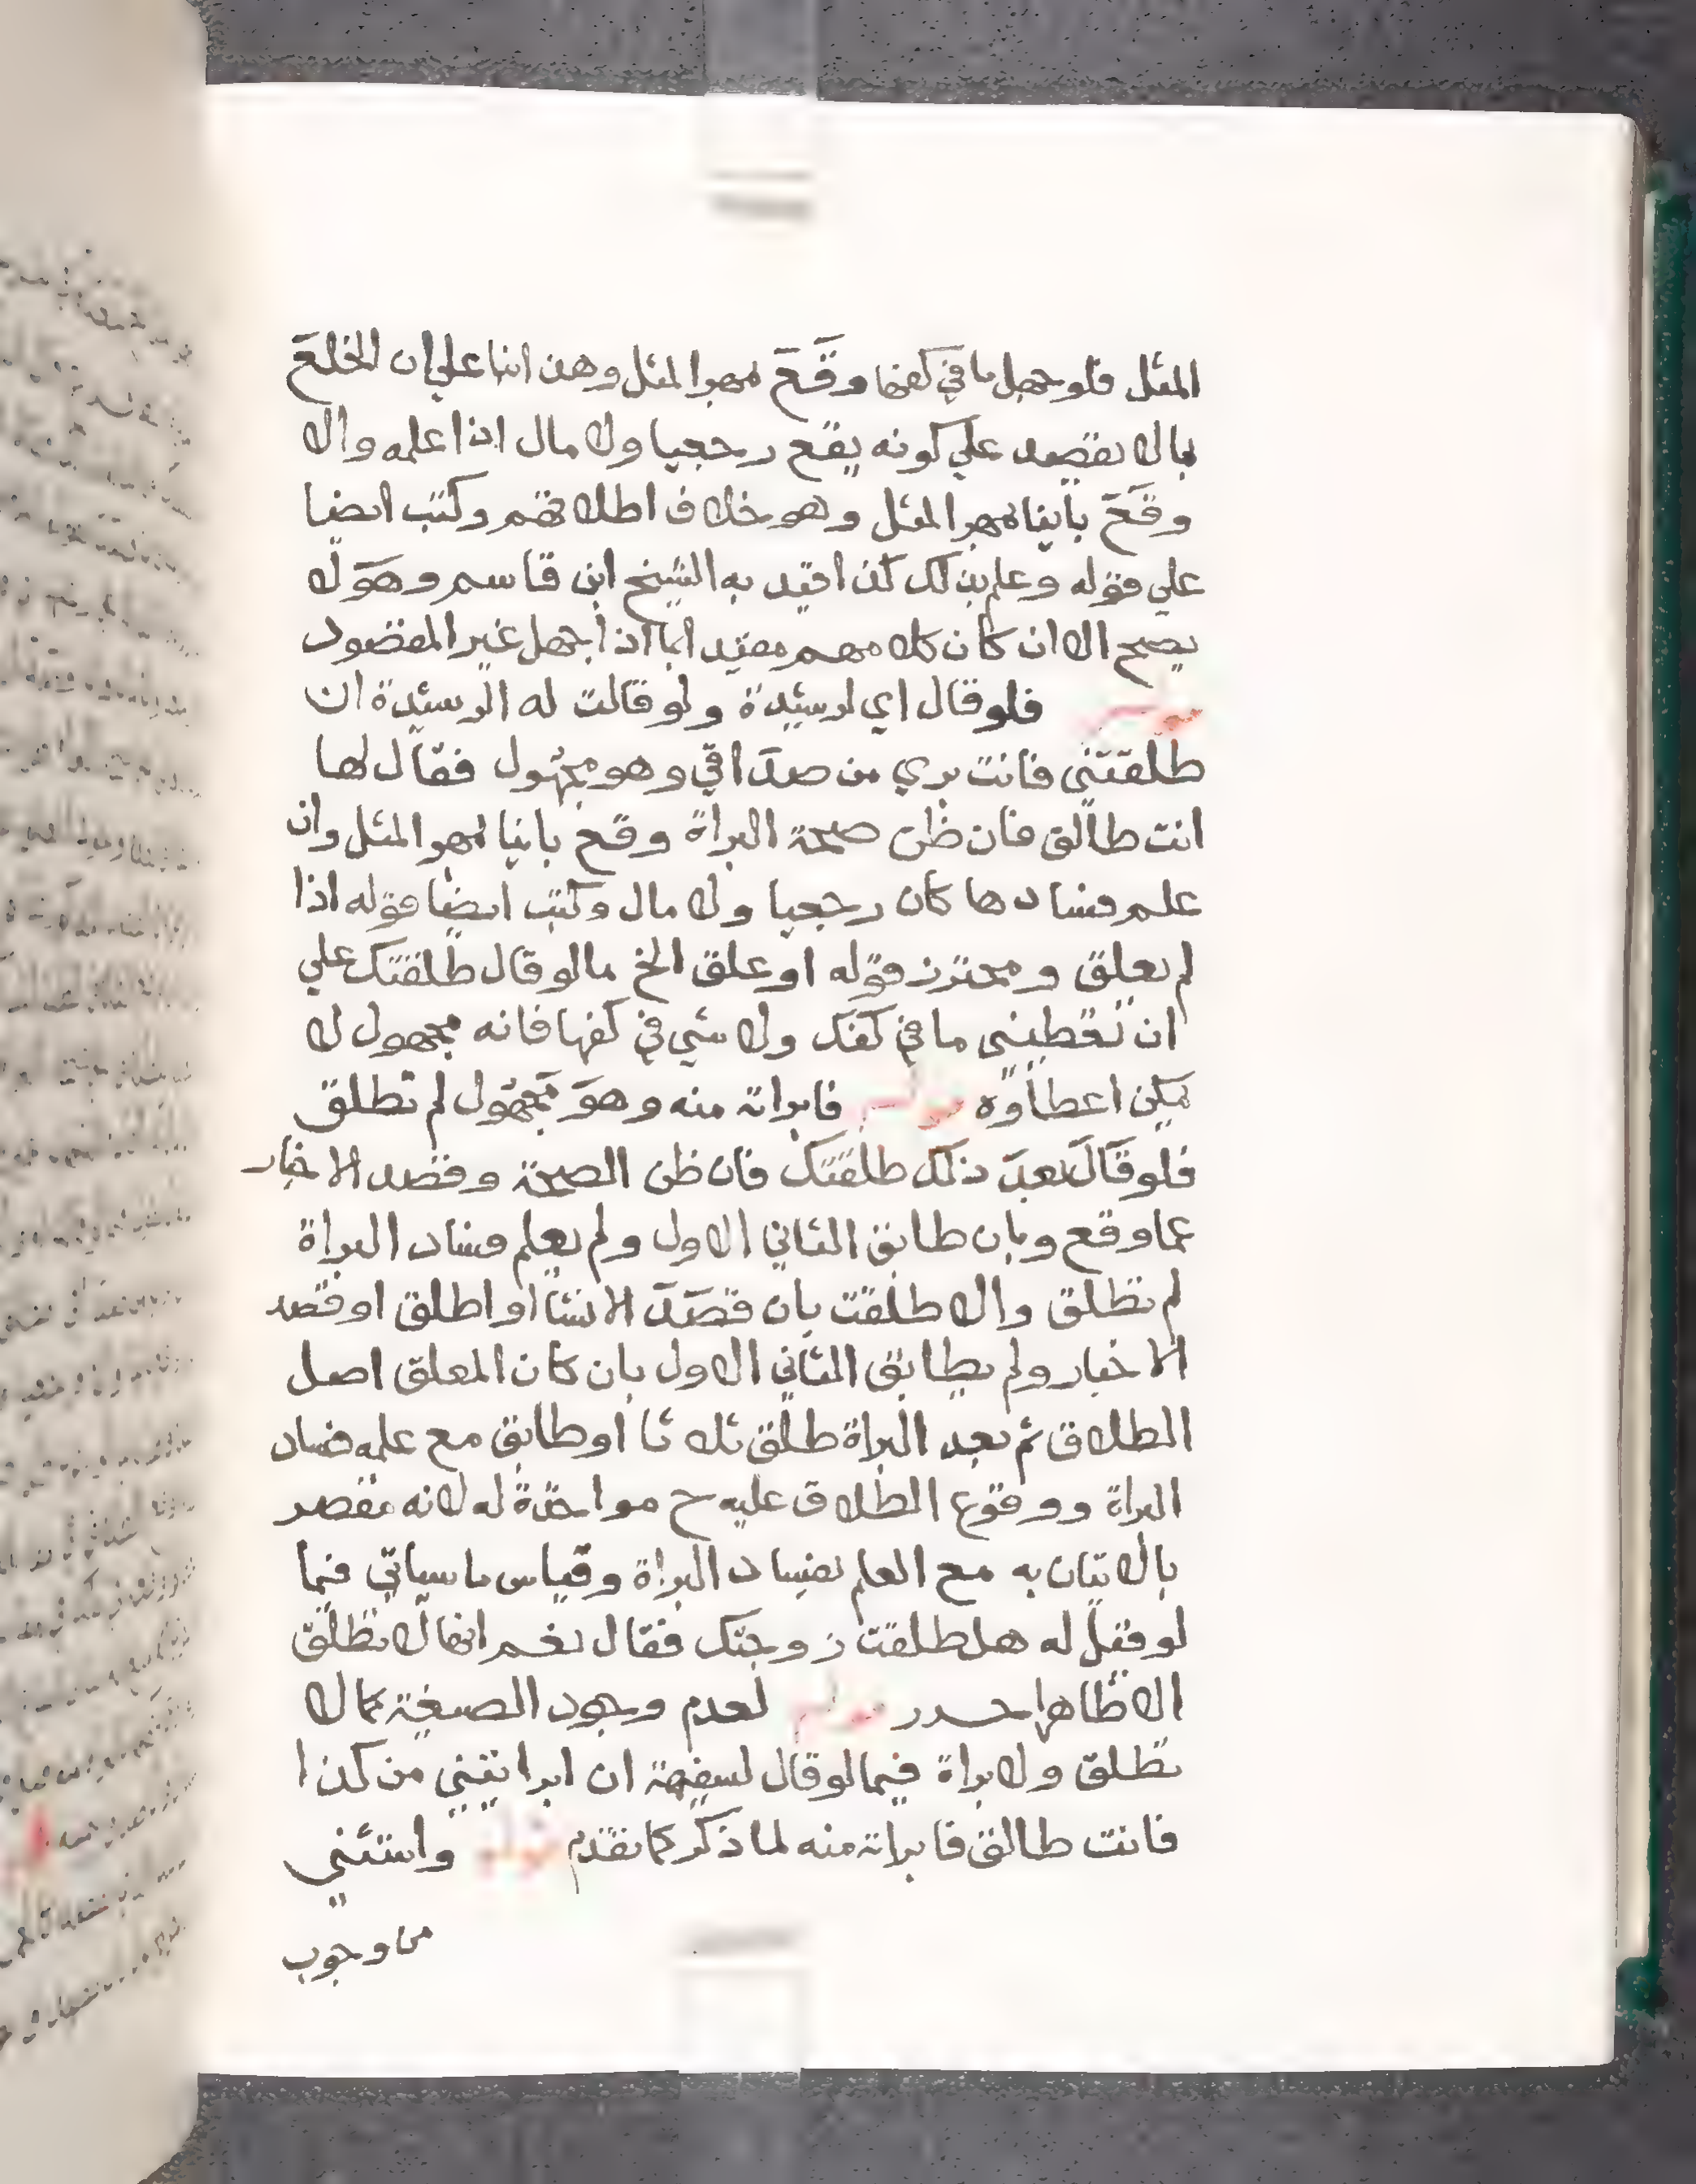 المثل فلو جهل ما في كفها وقع بمهر المثل وهذا بنا علي ان الخلع
بما لا يقصد علي كونه يقع رجعيا ولا مال اذا علمه والا
وقع باينا بمهر المثل وهو خلاف اطلاقهم وكتب ايضا
علي قوله وعلم بذلك كذا قيد به الشيخ ابن قاسم وهو لا
يصح الا ان كان كلامهم مقيد ابما اذا جهل غير المقصود
فلو قال اي لرشيدة ولو قالت له الرشيدة ان
طلقتني فانت بري من صداقي وهو مجهول فقال لها
انت طالق فان ظن صحة البراة وقع باينا بمهر المثل وان
علم فسادها كان رجعيا ولا مال وكتب ايضا قوله اذا
لم يعلق ومحترز قوله او علق الخ مالو قال طلقتك علي
ان تعطيني ما في كفك ولا شي في كفها فانه مجهول لا
يمكن اعطاوه فابراته منه وهو مجهول لم تطلق
فلو قال بعد ذلك طلقتك فان ظن الصحة وقصد الاخبار
عما وقع وبان طابق الثاني الاول ولم يعلم فساد البراة
لم تطلق والا طلقت بان قصد الانشا او اطلق او قصد
الاخبار ولم يطابق الثاني الاول بان كان المعلق اصل
الطلاق ثم بعد البراة طلق ثلاثا او طابق مع علمه فساد
البراة ووقوع الطلاق عليه ح مواخذة له لانه مقصر
بالاتيان به مع العلم بفساد البراة وقياس ما سياتي فيما
لو قيل له هل طلقت زوجتك فقال نعم انها لا تطلق
الا ظاهرا لعدم وجود الصيغة كما لا
تطلق ولا براة فيما لو قال لسفيهة ان ابراتيني من كذا
فانت طالق فابراته منه لما ذكر كما تقدم واستثني
من وجوب